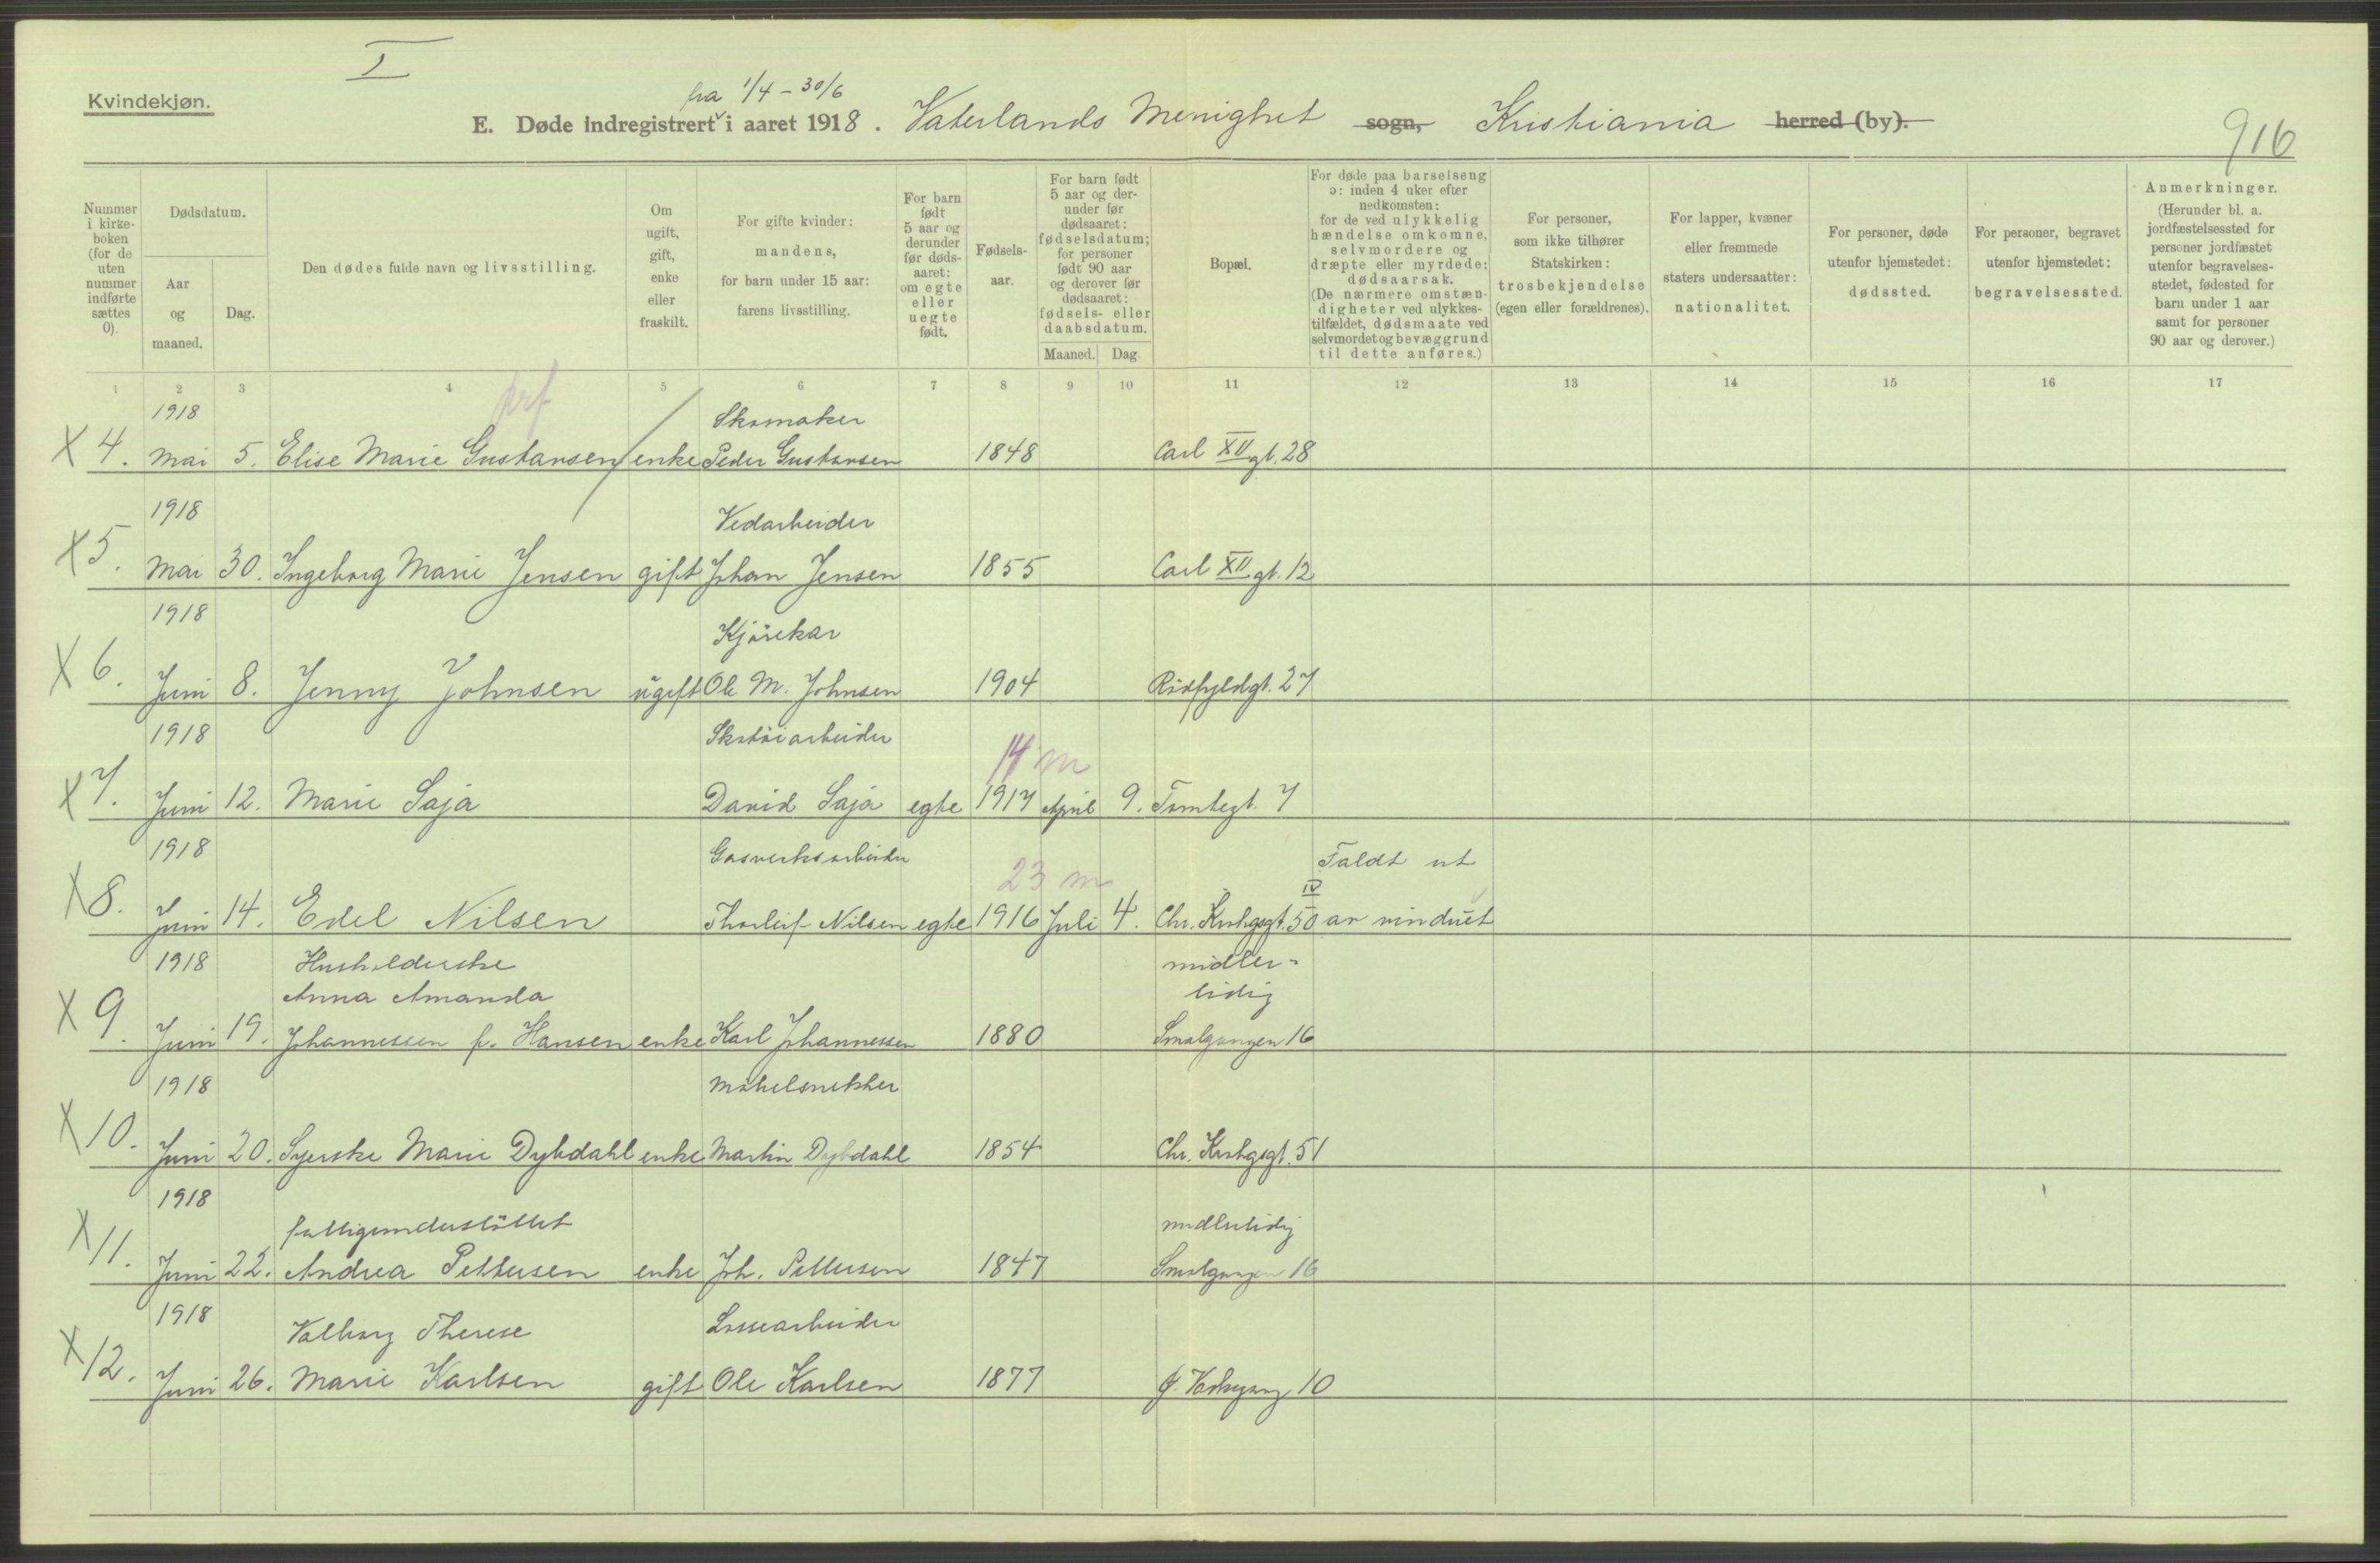 I
Kvindekjøn.
fra 1/4 – 30/6
E. Døde indregistrert i aaret 1918. Vaterlands Menighet sogn, Kristiania herred (by).
916
Nummer i kirkeboken (for de uten nummer indførte sættes 0).
Dødsdatum.
Aar og maaned.
Dag.
Den dødes fulde navn og livsstilling.
Om ugift, gift, enke eller fraskilt.
For gifte kvinder: mandens, for barn under 15 aar: farens livsstilling.
For barn født 5 aar og derunder før dødsaaret: om egte eller uegte født.
Fødselsaar.
For barn født 5 aar og derunder før dødsaaret: fødselsdatum; for personer født 90 aar og derover før dødsaaret: fødsels- eller daabsdatum.
Maaned. Dag.
Bopæl.
For døde paa barselseng ɔ: inden 4 uker efter nedkomsten: for de ved ulykkelig hændelse omkomne, selvmordere og dræpte eller myrdede: dødsaarsak. (De nærmere omstændigheter ved ulykkestilfældet, dødsmaate ved selvmordet og bevæggrund til dette anføres.)
For personer, som ikke tilhører Statskirken: trosbekjendelse (egen eller forældrenes).
For lapper, kvæner eller fremmede staters undersaatter: nationalitet.
For personer, døde utenfor hjemstedet: dødssted.
For personer, begravet utenfor hjemstedet: begravelsessted.
Anmerkninger. (Herunder bl. a. jordfæstelsessted for personer jordfæstet utenfor begravelsesstedet, fødested for barn under 1 aar samt for personer 90 aar og derover.)
1 2 3 4 5 6 7 8 9 10 11 12 13 14 15 16 17
1918 Skomaker
X 4. Mai 5. Elise Marie Gustavsen enke Peder Gustavsen 1848 Carl XII gt. 28
1918 Vedarbeider
X 5. Mai 30. Ingeborg Marie Jensen gift Johan Jensen 1855 Carl XII gt. 12
1918 Kjørekar
X 6. Juni 8. Jenny Johnsen ugift Ole M. Johnsen 1904 Rødfyldgt. 27
1918 Skotøiarbeider 14 m
X 7. Juni 12. Marie Saja David Saja egte 1917 April 9. Tomtegt. 7
1918 Gasverksarbeider 23 m Faldt ut
X 8. Juni 14. Edel Nilsen Thorleif Nilsen egte 1916 Juli 4. Chr. Krohgsgt. 50 IV av vinduet
1918 Husholderske midler-
Anna Amanda tidig
X 9. Juni 19. Johannessen f. Hansen enke Karl Johannessen 1880 Smalgangen 16
1918 Møbelsnekker
X 10. Juni 20. Syerske Marie Dybdahl enke Martin Dybdahl 1854 Chr. Krohgsgt. 51
1918
fattigunderstøttet midlertidig
X 11. Juni 22. Andrea Pettersen enke Joh. Pettersen 1847 Smalgangen 16
1918 Valborg Therese Lossearbeider
X 12. Juni 26. Marie Karlsen gift Ole Karlsen 1877 10